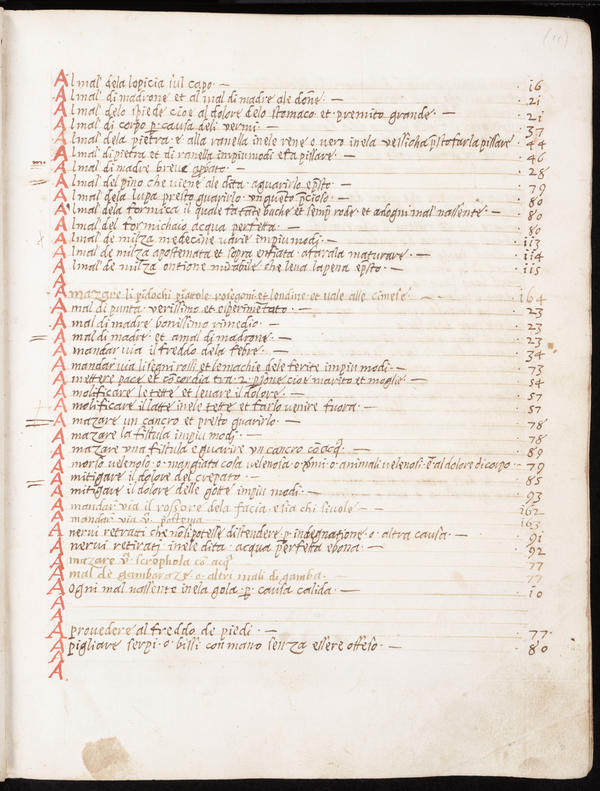 (11)
Al mal dela lopicia sul capo · — · 16
Al mal di madrone et al mal di madre ale done · — · 21
Al mal delo spiede cioe al dolore delo stomaco et premito grande · — · 21
Al mal di corpo p causa deli vermi · — · 37
Al mal dela pietra e alla ranella inele rene e vero inela vessicha psto farla pissare · 44
Al mal di pietra et di ranella impiu modi e fa pissare · — · 46
Al mal di madre breve · — · 28
Al mal del pino che viene ale dita aguarirlo epsto · — · 79
Al mal dela lupa presto guarirlo unguento pcioso · — · 80
Al mal dela formica il quale fa tate buche et semp rode et adogni mal nassente · — · 80
Al mal del formichaio acqua perfetta · — · 80
Al mal de milza medecine varie impiu modi · — · 113
Al mal de milza apostemata et sopra enfiata afarala maturare · — · 114
Al mal de milza ontione mirabile che leva la pena epsto · — · 115
A mazare li pidochi piatole et lendine et vale alle cimese · — · 164
A mal di punta verissimo et esperimetato · — · 23
A mal di madre bonissimo rimedio · — · 23
A mal di madre et amal di madrone · — · 23
A mandar via il freddo dela febre · — · 34
A mandar via li segni rossi et le machie dele ferite impiu modi · — · 73
A mettere pace et cocordia tra · 2 · psone cioe marito et moglie · — · 54
A molificare le tette et levare il dolore · — · 57
A molificare il latte inele tette et farlo venire fuora · — · 57
A mazare un cancro et presto guarirlo · — · 78
A mazare la fistula impiu modi · — · 78
A mazare una fistula e guarire un cancro co acq · — · 89
A morso velenoso o mangiata cosa velenosa o vermi o animali velenosi et al dolore di corpo · 79
A mitigare il dolore del crepato · — · 85
A mitigare il dolore delle gotte impiu modi · — · 93
A mandar via il rossore dela facia e sia chi si vuole · — · 162
A mandar via · — · 163
A nervi retrati che no si potesse distendere p indegnatione o altra causa · — · 91
A nervi retirati inele dita acqua perfetta ebona · — · 92
A mazare scrophola co acq · 77
A mal de gambaraze o altri mali di gamba · — · 77
A Ogni mal nassente inela gola p causa calida · — · 10
A
A
A provedere al freddo de piedi · — · 77
A pigliare serpi o bissi con mano senza essere offeso · — · 80
A